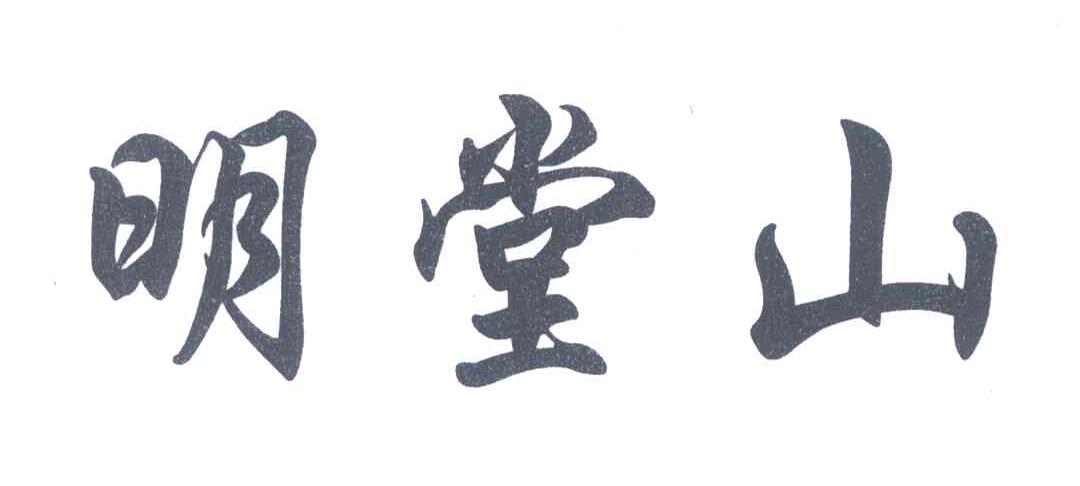 明堂山